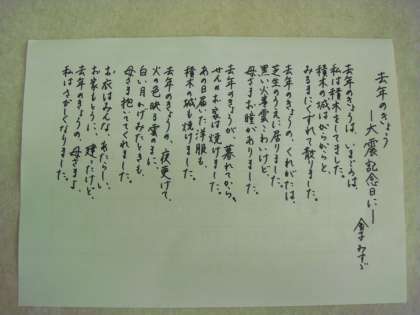 去年のきょう
―大震記念日に―
金子みすゞ
去年のきょうは、いまごろは、
私は積木をしてました。
積木の城はがらがらと、
みるまにくずれて散りました。
去年のきょうの、くれがたは、
芝生のうえに居りました。
黒い火事雲こわいけど、
母さまお瞳がありました。
去年のきょうが、暮れてから、
せんのお家は焼けました。
あの日届いた洋服も、
積木の城も焼けました。
去年のきょうの、夜更けて、
火の色映る雲のまに、
白い月かげみたときも、
母さま抱いててくれました。
お衣はみんな、あたらしい、
お家もとうに、建ったけど、
去年のきょうの、母さまよ、
私はさびしくなりました。